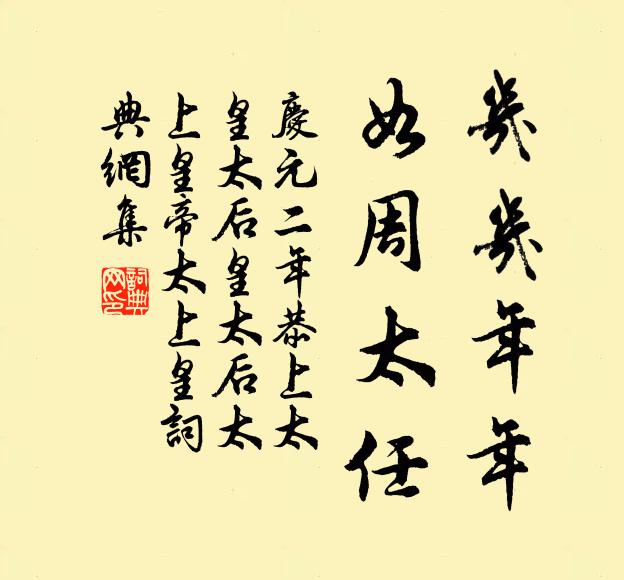 歲歲年年
如周太任
慶元二年恭上太
皇太后皇太后太
上皇帝太上皇詞
典網集
詞典
网印